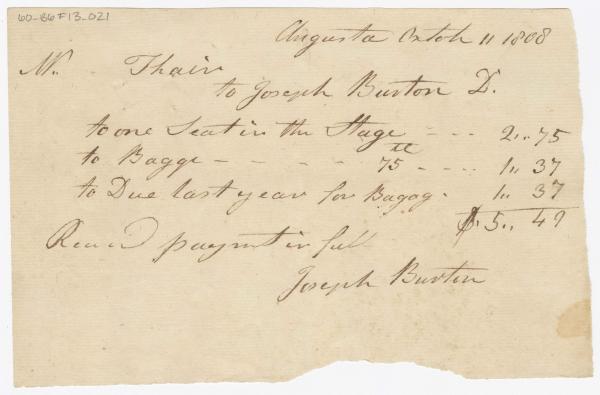 60-B6F13_021
Augusta Octob 11 1808
Mr. Thair
to Joseph Burton D.
to one Seat in the Stage - - - 2.. 75
to Bagge - - - - - 75 - - - - 1.. 37
to Due last year for Bagag - 1.. 37
$ 5.. 49
Recevd payment in full
Joseph Burton